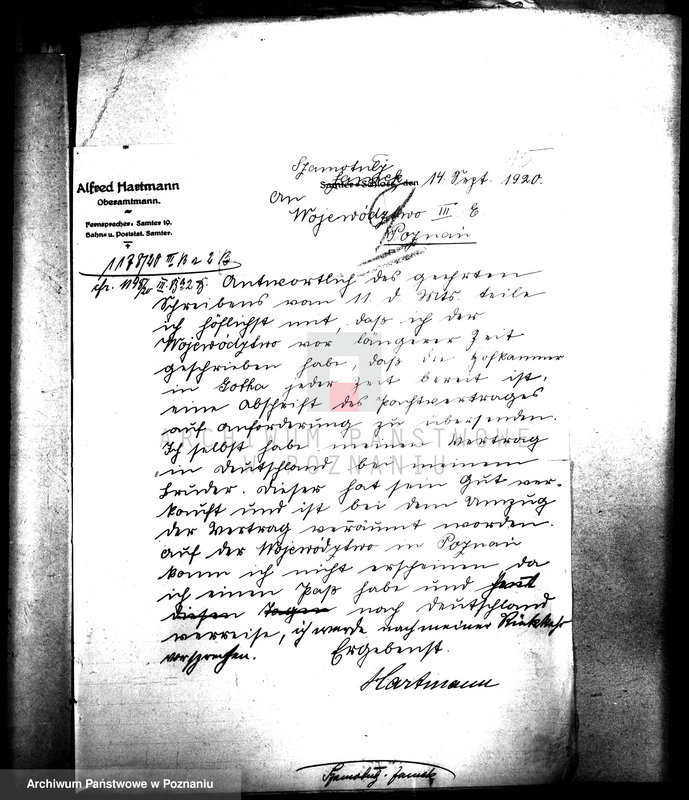 Alfred Hartmann
Oberamtmann.
Fernsprecher: Samter 19.
Bahn- u. Poststat. Samter.
Szamotuły
Zamek
Samter-Schloss, den 14 Sept. 1920.
An
Województwo III. E
Poznań
Antwortlich des geehrten
Schreibens vom 11. d. Mts. teile
ich höflichst mit, daß ich der
Województwo vor längerer Zeit
geschrieben habe, daß die Hofkammer
in Gotha jeder Zeit bereit ist,
eine Abschrift des Pachtvertrages
auf Anforderung zu übersenden.
Ich selbst habe meinen Vertrag
in Deutschland bei meinem
Bruder. Dieser hat sein Gut ver-
kauft und ist bei dem Umzug
der Vertrag verräumt worden.
Auf der Województwo in Poznań
kann ich nicht erscheinen, da
ich einen Paß habe und
diesen Tagen nach Deutschland
verreise, ich werde nach meiner Rückkehr
vorsprechen.
Ergebenst.
Hartmann
Szamotuły-Zamek
ARCHIWUM PAŃSTWOWE
W POZNANIU
Archiwum Państwowe w Poznaniu